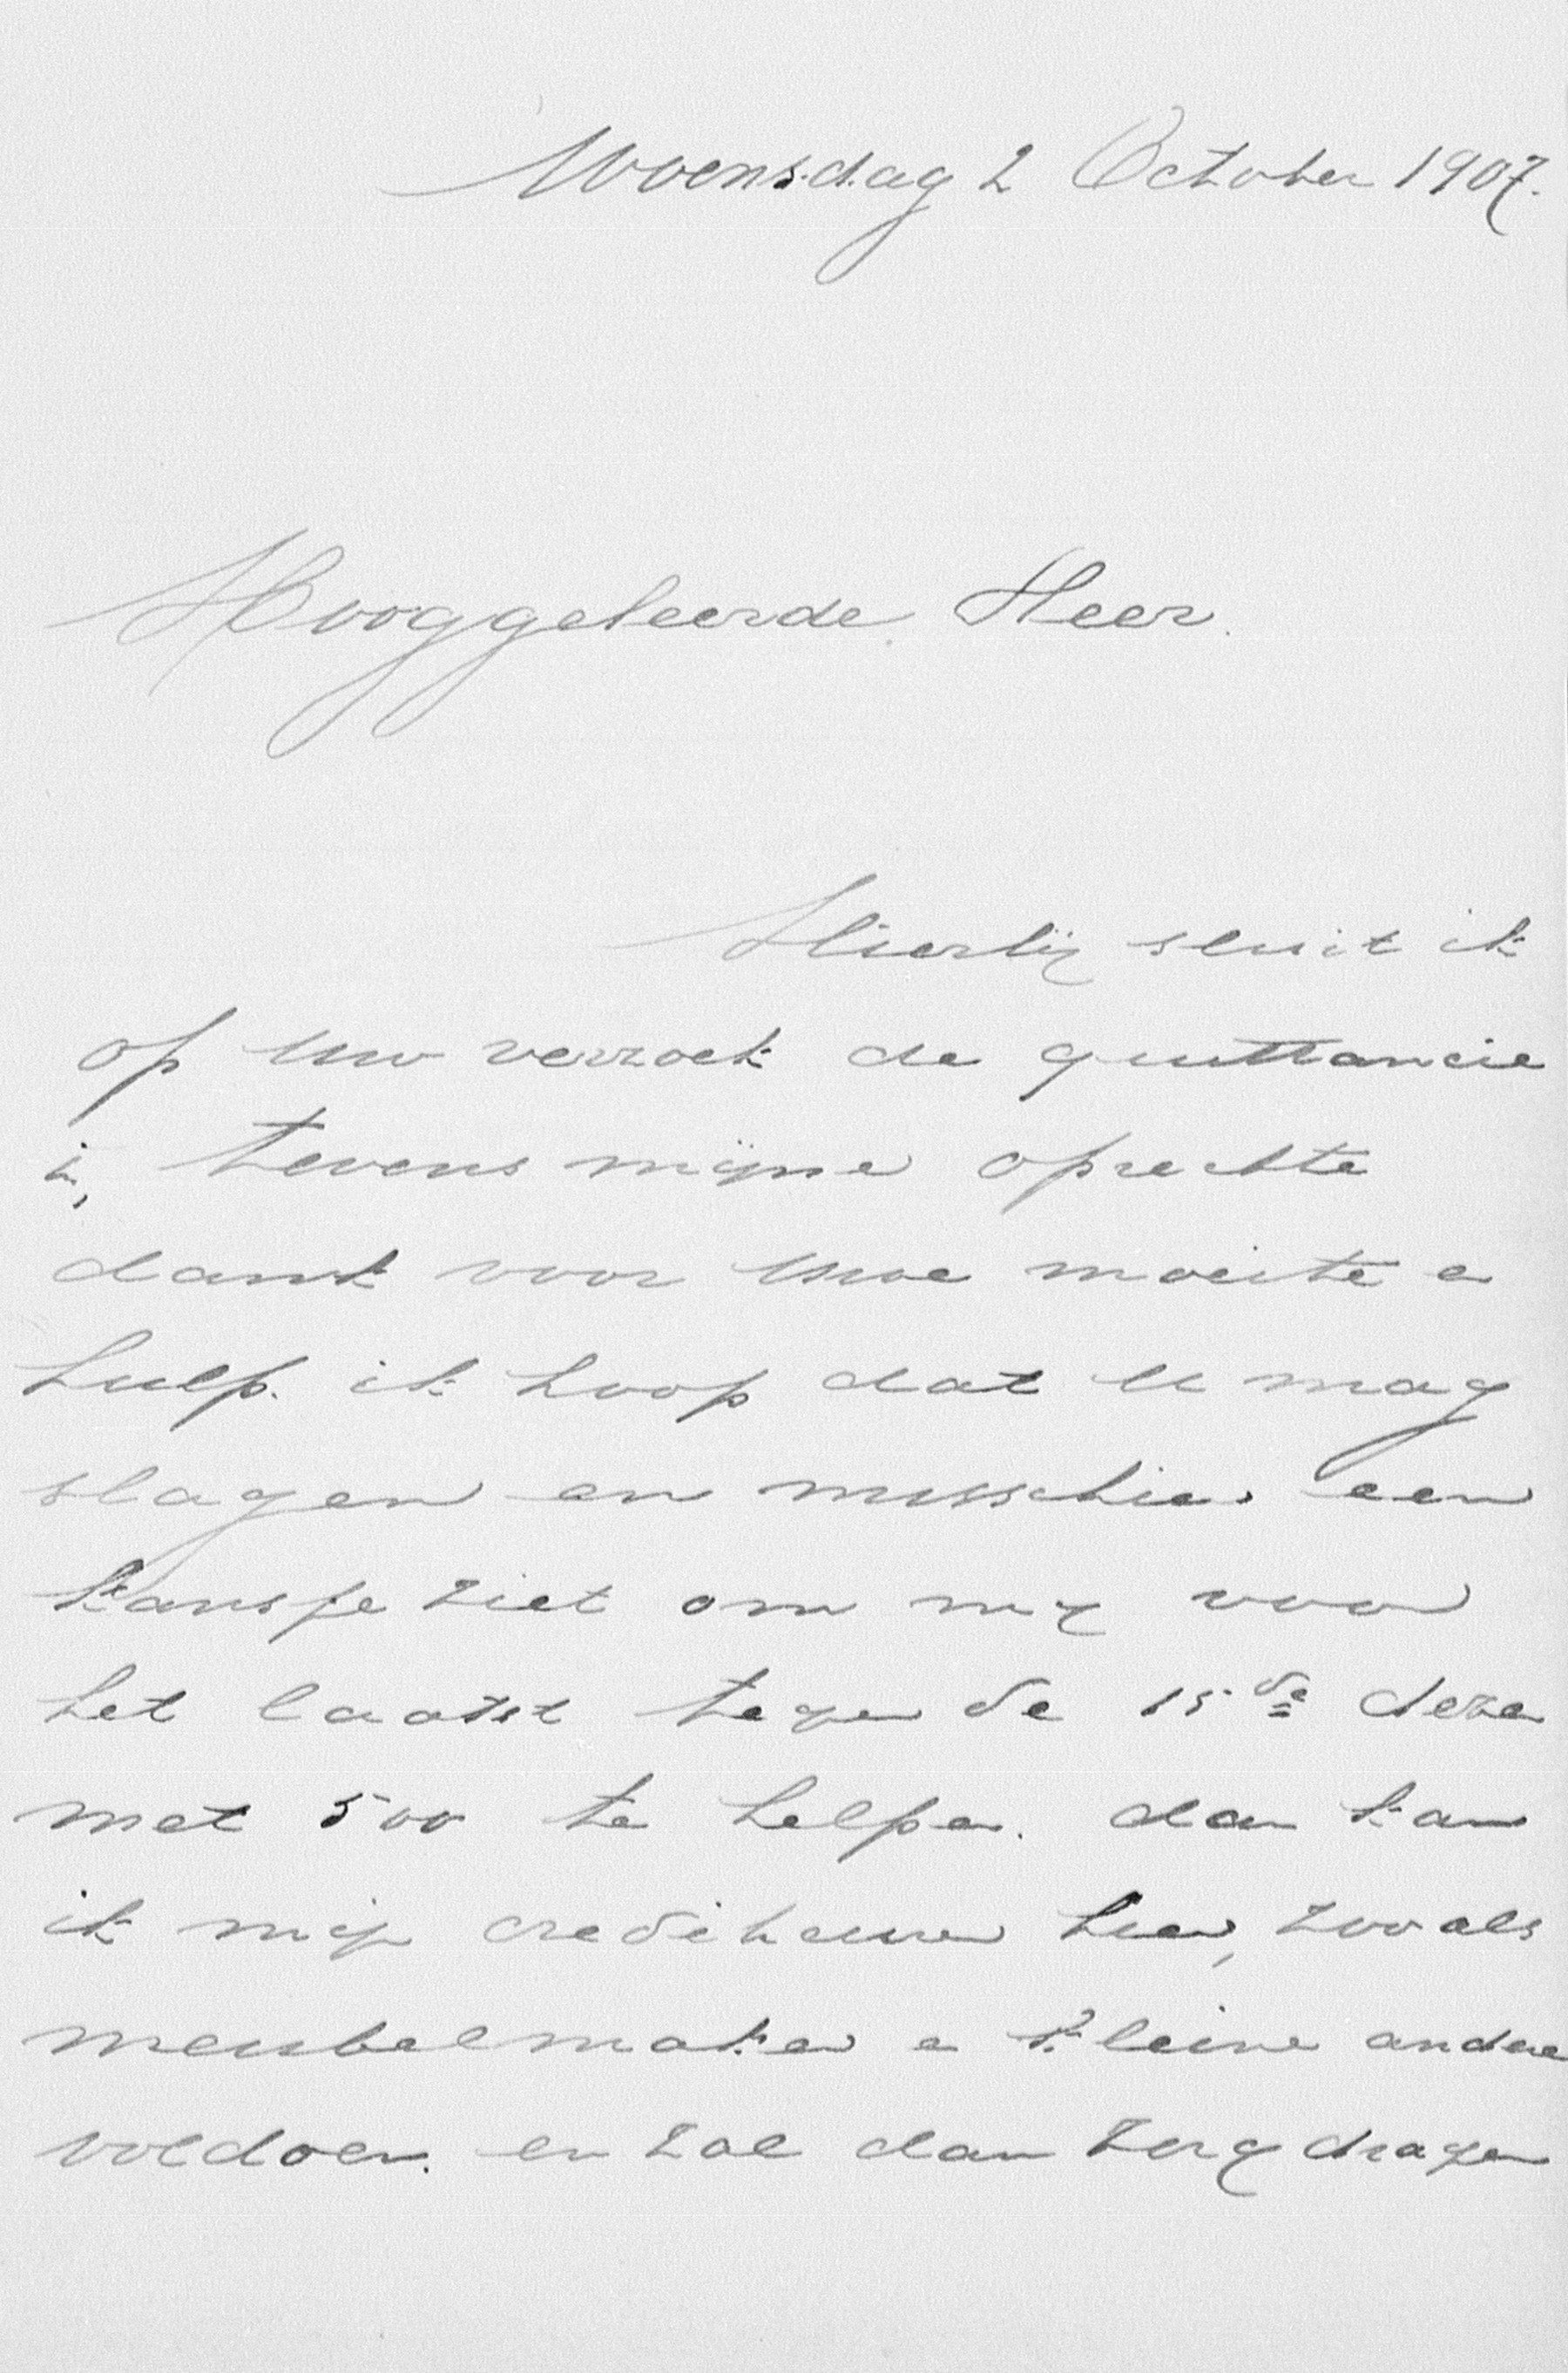 Woensdag 2 October 1907.
Hooggeleerde Heer.
Hierbij sluit ik
op Uw verzoek de quittancie
in, tevens mijne oprechte
dank voor Uwe moeite en
hulp. ik hoop dat U mag
slagen en misschien een
kansje ziet om mij voor
het laatst tegen de 15de dezer
met 500 te helpen. dan kan
ik mijn crediteuren hier, zooals
meubelmaker en kleine andere
voldoen. en zal dan zorg dragen